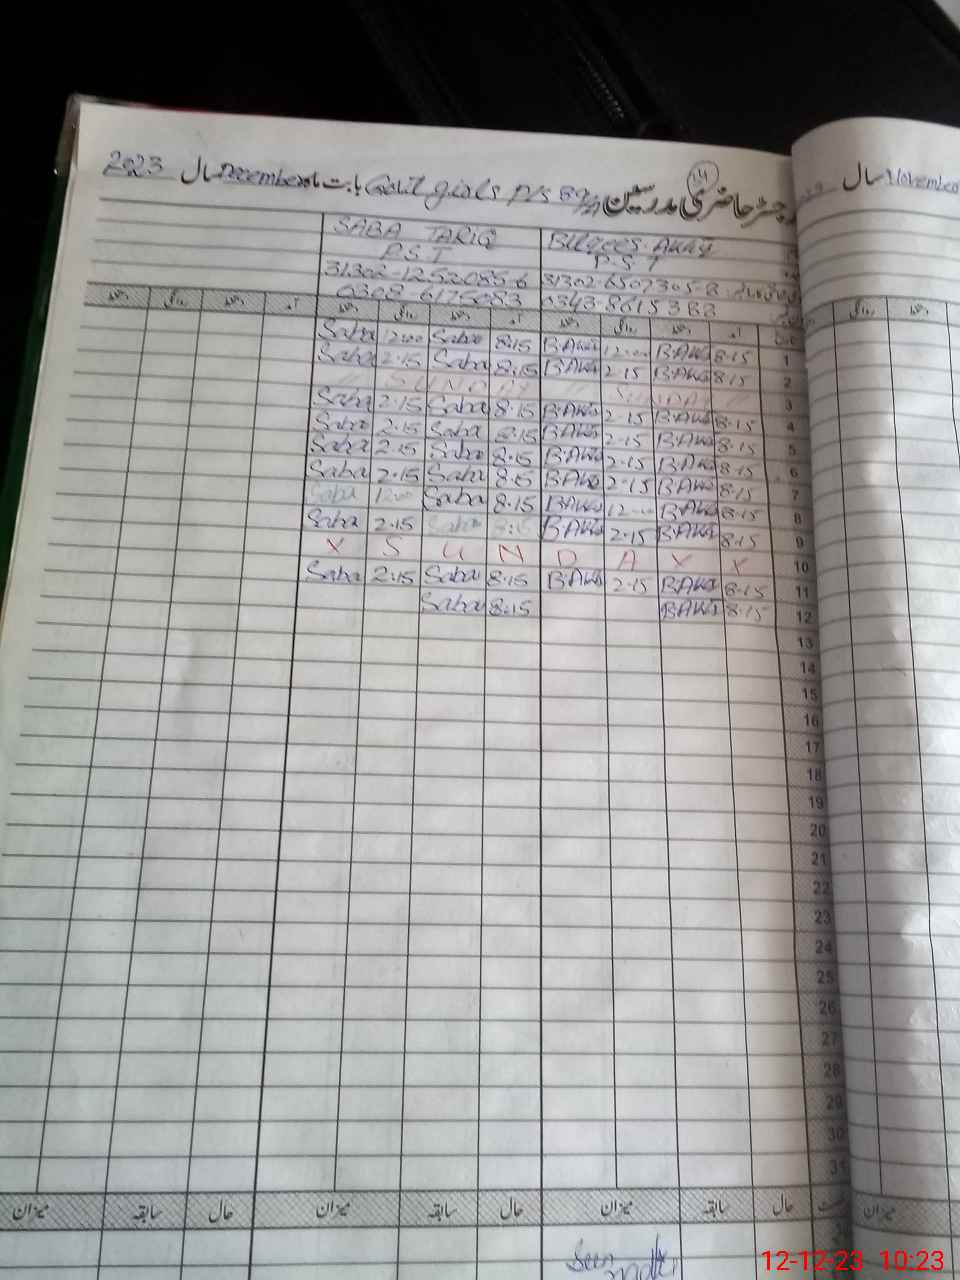 رجسٹر حاضری مدرسین Govt girls P/S بابت ماہ December سال 2023
14
سال November
SABA TARIQ
P.S.T
31302-1252085-6
0308-6175083
Bilqees
P.S.T
31302-6507305-8
0343-8615388
دستخط روانگی دستخط آمد دستخط روانگی دستخط آمد دستخط روانگی دستخط آمد
Saba 12:00 Saba 8:15 B.AWS 12:00 B.AWS 8:15 1
Saba 2:15 Saba 8:15 B.AWS 2:15 B.AWS 8:15 2
SUNDAY SUNDAY 3
Saba 2:15 Saba 8:15 B.AWS 2:15 B.AWS 8:15 4
Saba 2:15 Saba 8:15 B.AWS 2:15 B.AWS 8:15 5
Saba 2:15 Saba 8:15 B.AWS 2:15 B.AWS 8:15 6
Saba 2:15 Saba 8:15 B.AWS 2:15 B.AWS 8:15 7
Saba 12:00 Saba 8:15 B.AWS 12:00 B.AWS 8:15 8
Saba 2:15 Saba 8:15 B.AWS 2:15 B.AWS 8:15 9
X S U N D A Y X 10
Saba 2:15 Saba 8:15 B.AWS 2:15 B.AWS 8:15 11
Saba 8:15 B.AWS 8:15 12
13
14
15
16
17
18
19
20
21
22
23
24
25
26
27
28
29
30
31
میزان سابقہ حال میزان سابقہ حال میزان سابقہ حال میزان
Seen
12-12-23 10:23